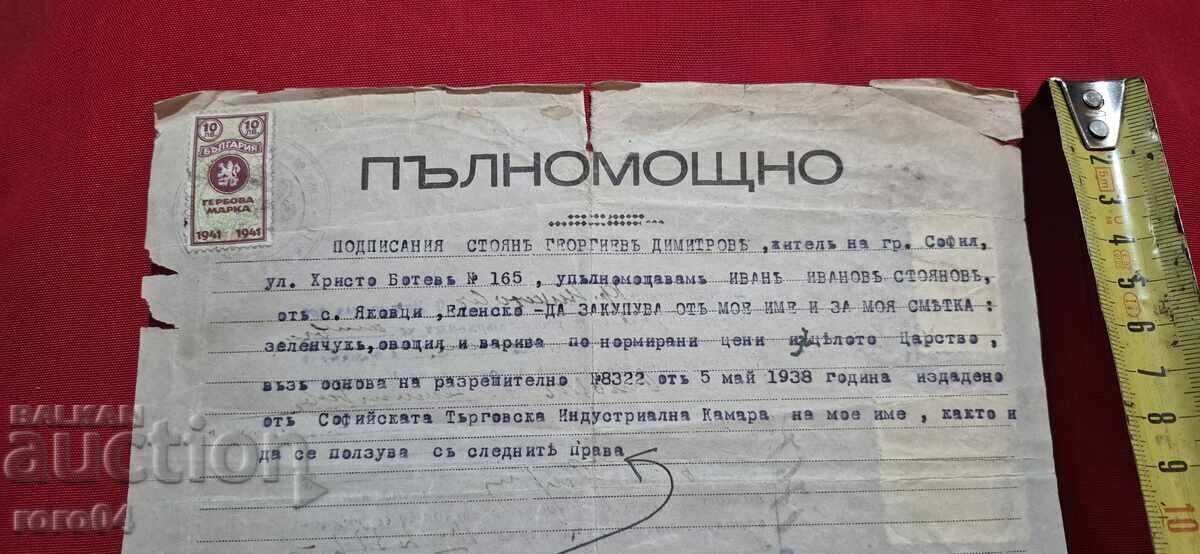 10 ЛВ 10 ЛВ
БЪЛГАРИЯ
ГЕРБОВА
МАРКА
1941 1941
ПЪЛНОМОЩНО
ПОДПИСАНИЯ СТОЯНЪ ГЕОРГИЕВЪ ДИМИТРОВЪ , житель на гр. София,
ул. Христо Ботевъ № 165 , упълномощавамъ ИВАНЪ ИВАНОВЪ СТОЯНОВЪ,
отъ с. Яковци ,Еленско -ДА ЗАКУПУВА ОТЪ МОЕ ИМЕ И ЗА МОЯ СМѢТКА :
зеленчукъ,овощия,и варива по нормирани цени изъ цѣлото Царство,
възъ основа на разрешително №8322 отъ 5 май 1938 година издадено
отъ Софийската Търговска Индустриална Камара на мое име , както и
да се ползува съ следнитѣ права
BULGARIAN
auction
roro64
2 3 4 5 6 7 8 9 10